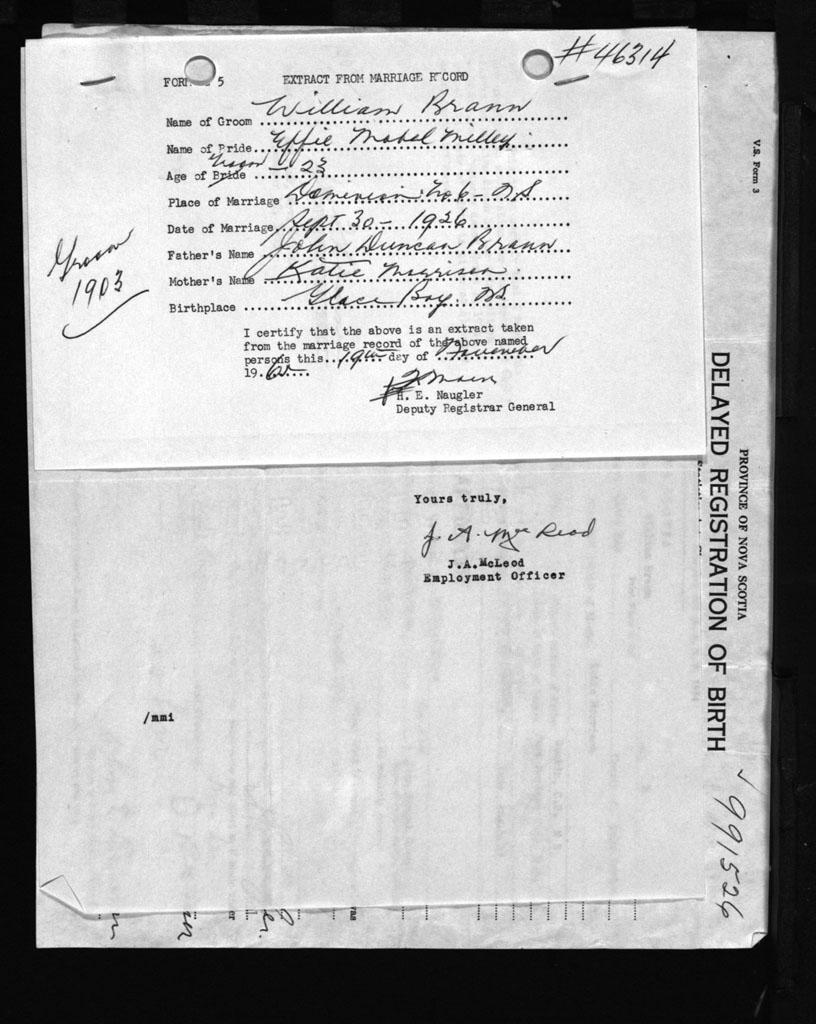 #46314
FOR 5 EXTRACT FROM MARRIAGE RECORD
Name of Groom William Brann
Name of Bride Effie Mabel Milley
Groom
Age of Bride - 23
Place of Marriage Dominion No 6 - NS
Date of Marriage Sept 30 - 1926
Father's Name John Duncan Brann
Mother's Name Katie Morrison
Birthplace Glace Bay NS
Groom
1903
I certify that the above is an extract taken
from the marriage record of the above named
persons this 19th day of November
19
H. E. Naugler
Deputy Registrar General
Yours truly,
J. A. McLeod
J.A.McLeod
Employment Officer
/mmi
V.S. Form 3
PROVINCE OF NOVA SCOTIA
DELAYED REGISTRATION OF BIRTH
991526